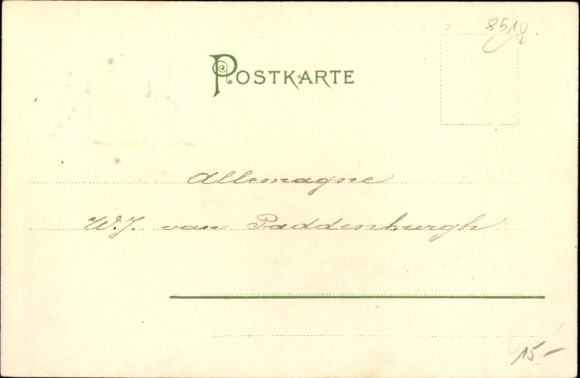 8512
POSTKARTE
Allemagne
W.J. van Paddenburgh
15.-